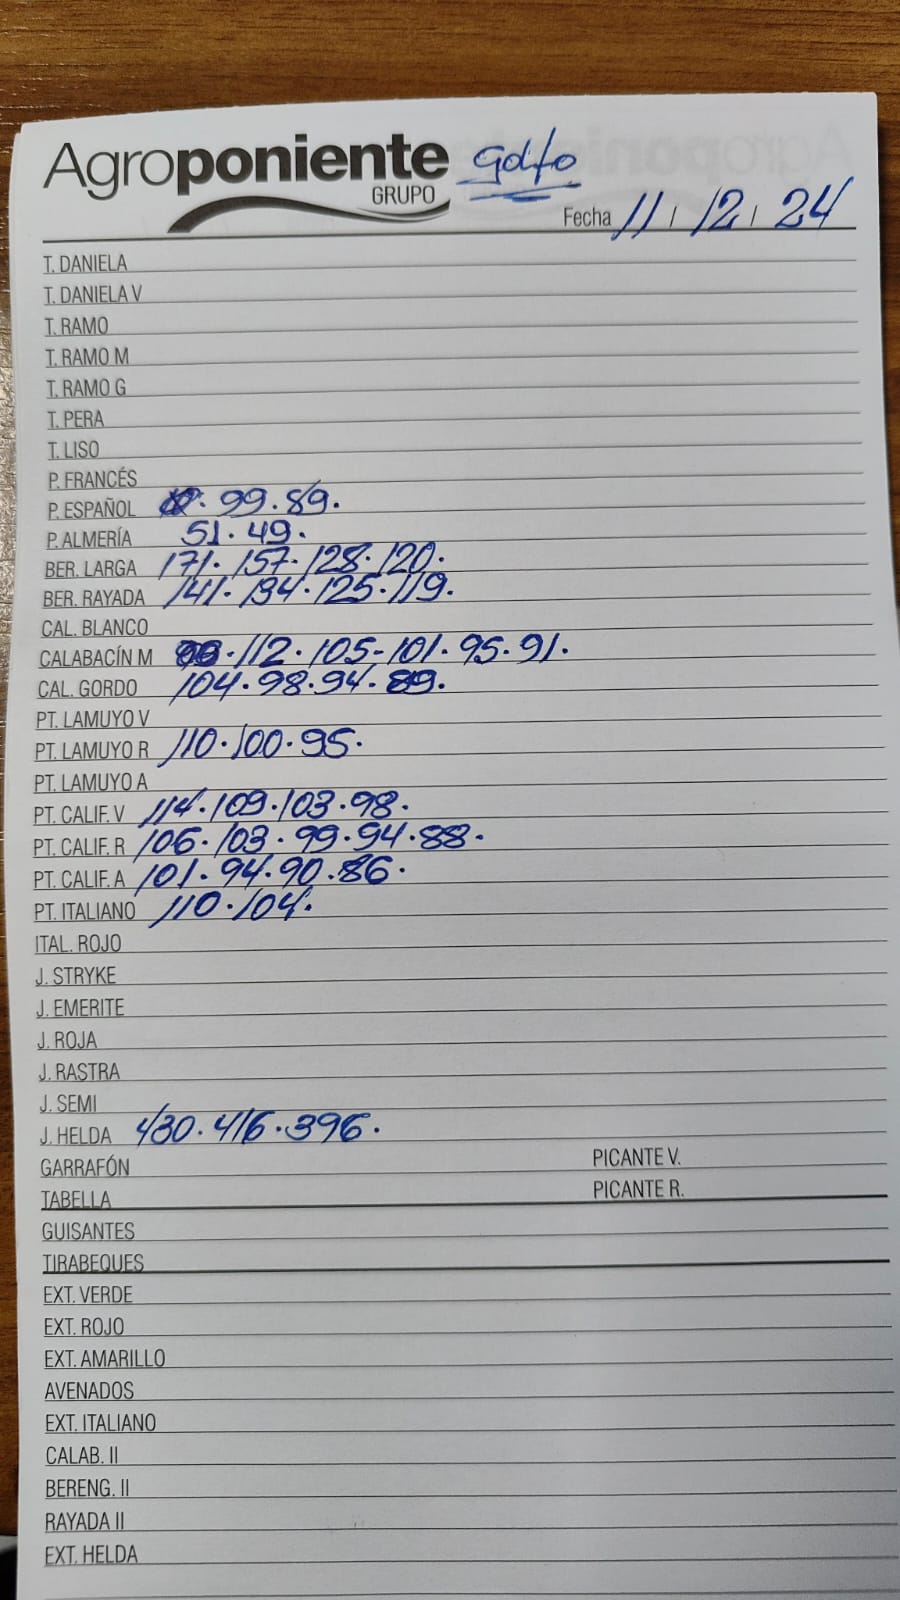 Agroponiente
GRUPO
Golfo
Fecha 11 / 12 / 24
T. DANIELA
T. DANIELA V
T. RAMO
T. RAMO M
T. RAMO G
T. PERA
T. LISO
P. FRANCÉS
P. ESPAÑOL . 99. 89.
P. ALMERÍA 51. 49.
BER. LARGA 171. 157. 128. 120.
BER. RAYADA 141. 134. 125. 119.
CAL. BLANCO
CALABACÍN M . 112. 105-101. 95. 91.
CAL. GORDO 104. 98. 94. 89.
PT. LAMUYO V
PT. LAMUYO R 110. 100. 95.
PT. LAMUYO A
PT. CALIF. V 114. 109. 103. 98.
PT. CALIF. R 106. 103. 99. 94. 88.
PT. CALIF. A 101. 94. 90. 86.
PT. ITALIANO 110. 104.
ITAL. ROJO
J. STRYKE
J. EMERITE
J. ROJA
J. RASTRA
J. SEMI
J. HELDA 430. 416. 396.
GARRAFÓN PICANTE V.
TABELLA PICANTE R.
GUISANTES
TIRABEQUES
EXT. VERDE
EXT. ROJO
EXT. AMARILLO
AVENADOS
EXT. ITALIANO
CALAB. II
BERENG. II
RAYADA II
EXT. HELDA